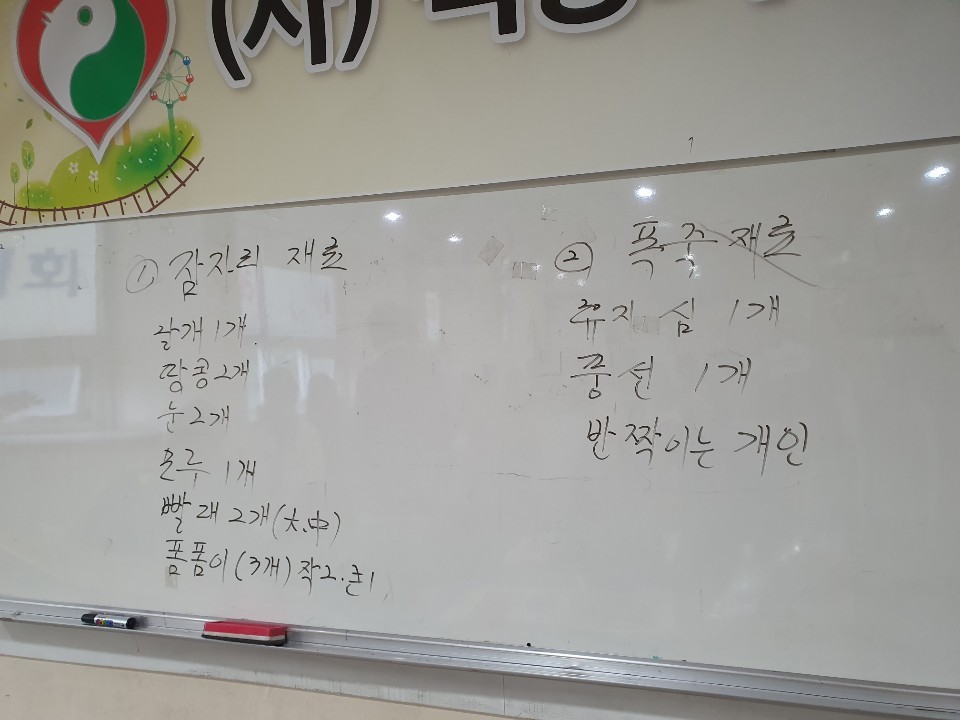 (사)
① 잠자리 재료
날개 1개
땅콩 2개
눈 2개
본루 1개
빨래 2개(大.中)
폼폼이(3개) 작2.큰1
② 폭주 재료
휴지 심 1개
풍선 1개
반짝이는 개인